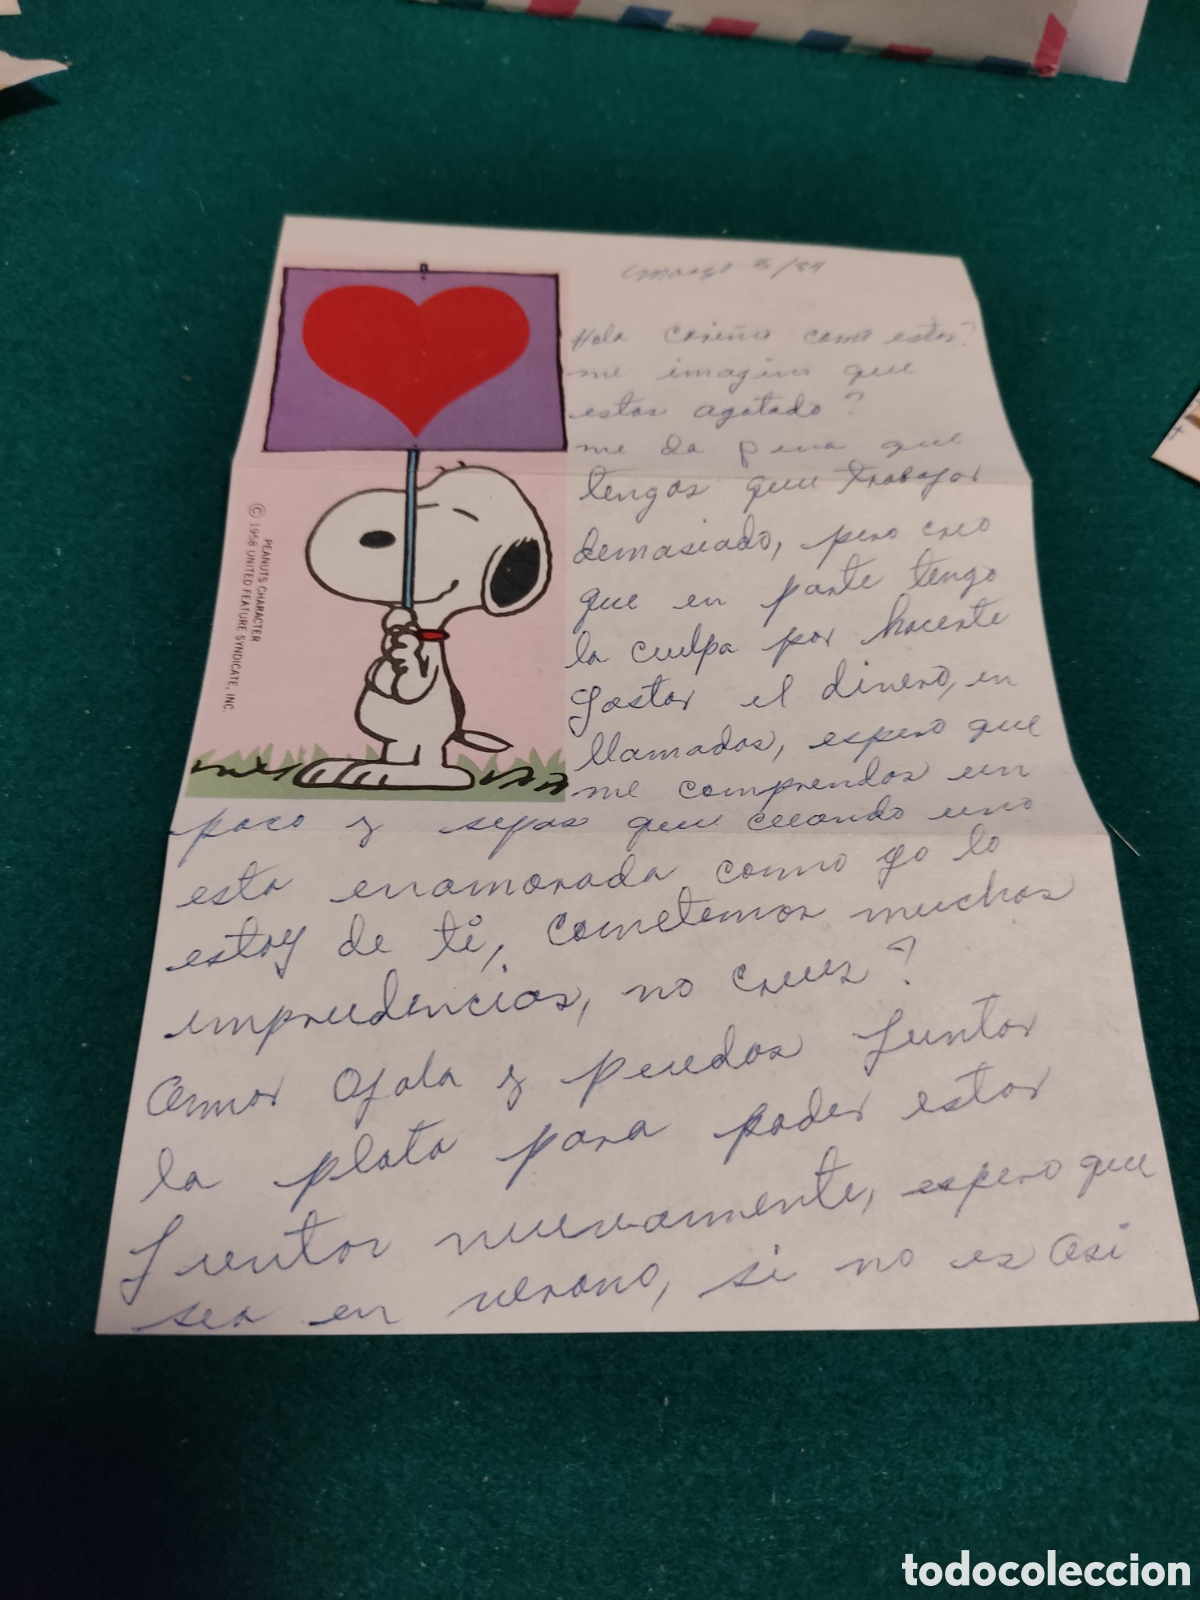 Marzo 3/84
Hola cariño como estas?
me imagino que
estas agotado?
me da pena que
tengas que trabajar
demasiado, pero creo
que en parte tengo
la culpa por hacerte
gastar el dinero, en
llamadas, espero que
me comprendas un
poco y sepas que cuando uno
esta enamorada como yo lo
estoy de ti, cometemos muchas
imprudencias, no crees?
Amor Ojala y puedas juntar
la plata para poder estar
juntos nuevamente, espero que
sea en verano, si no es asi
PEANUTS CHARACTER
© 1958 UNITED FEATURE SYNDICATE, INC.
todocoleccion